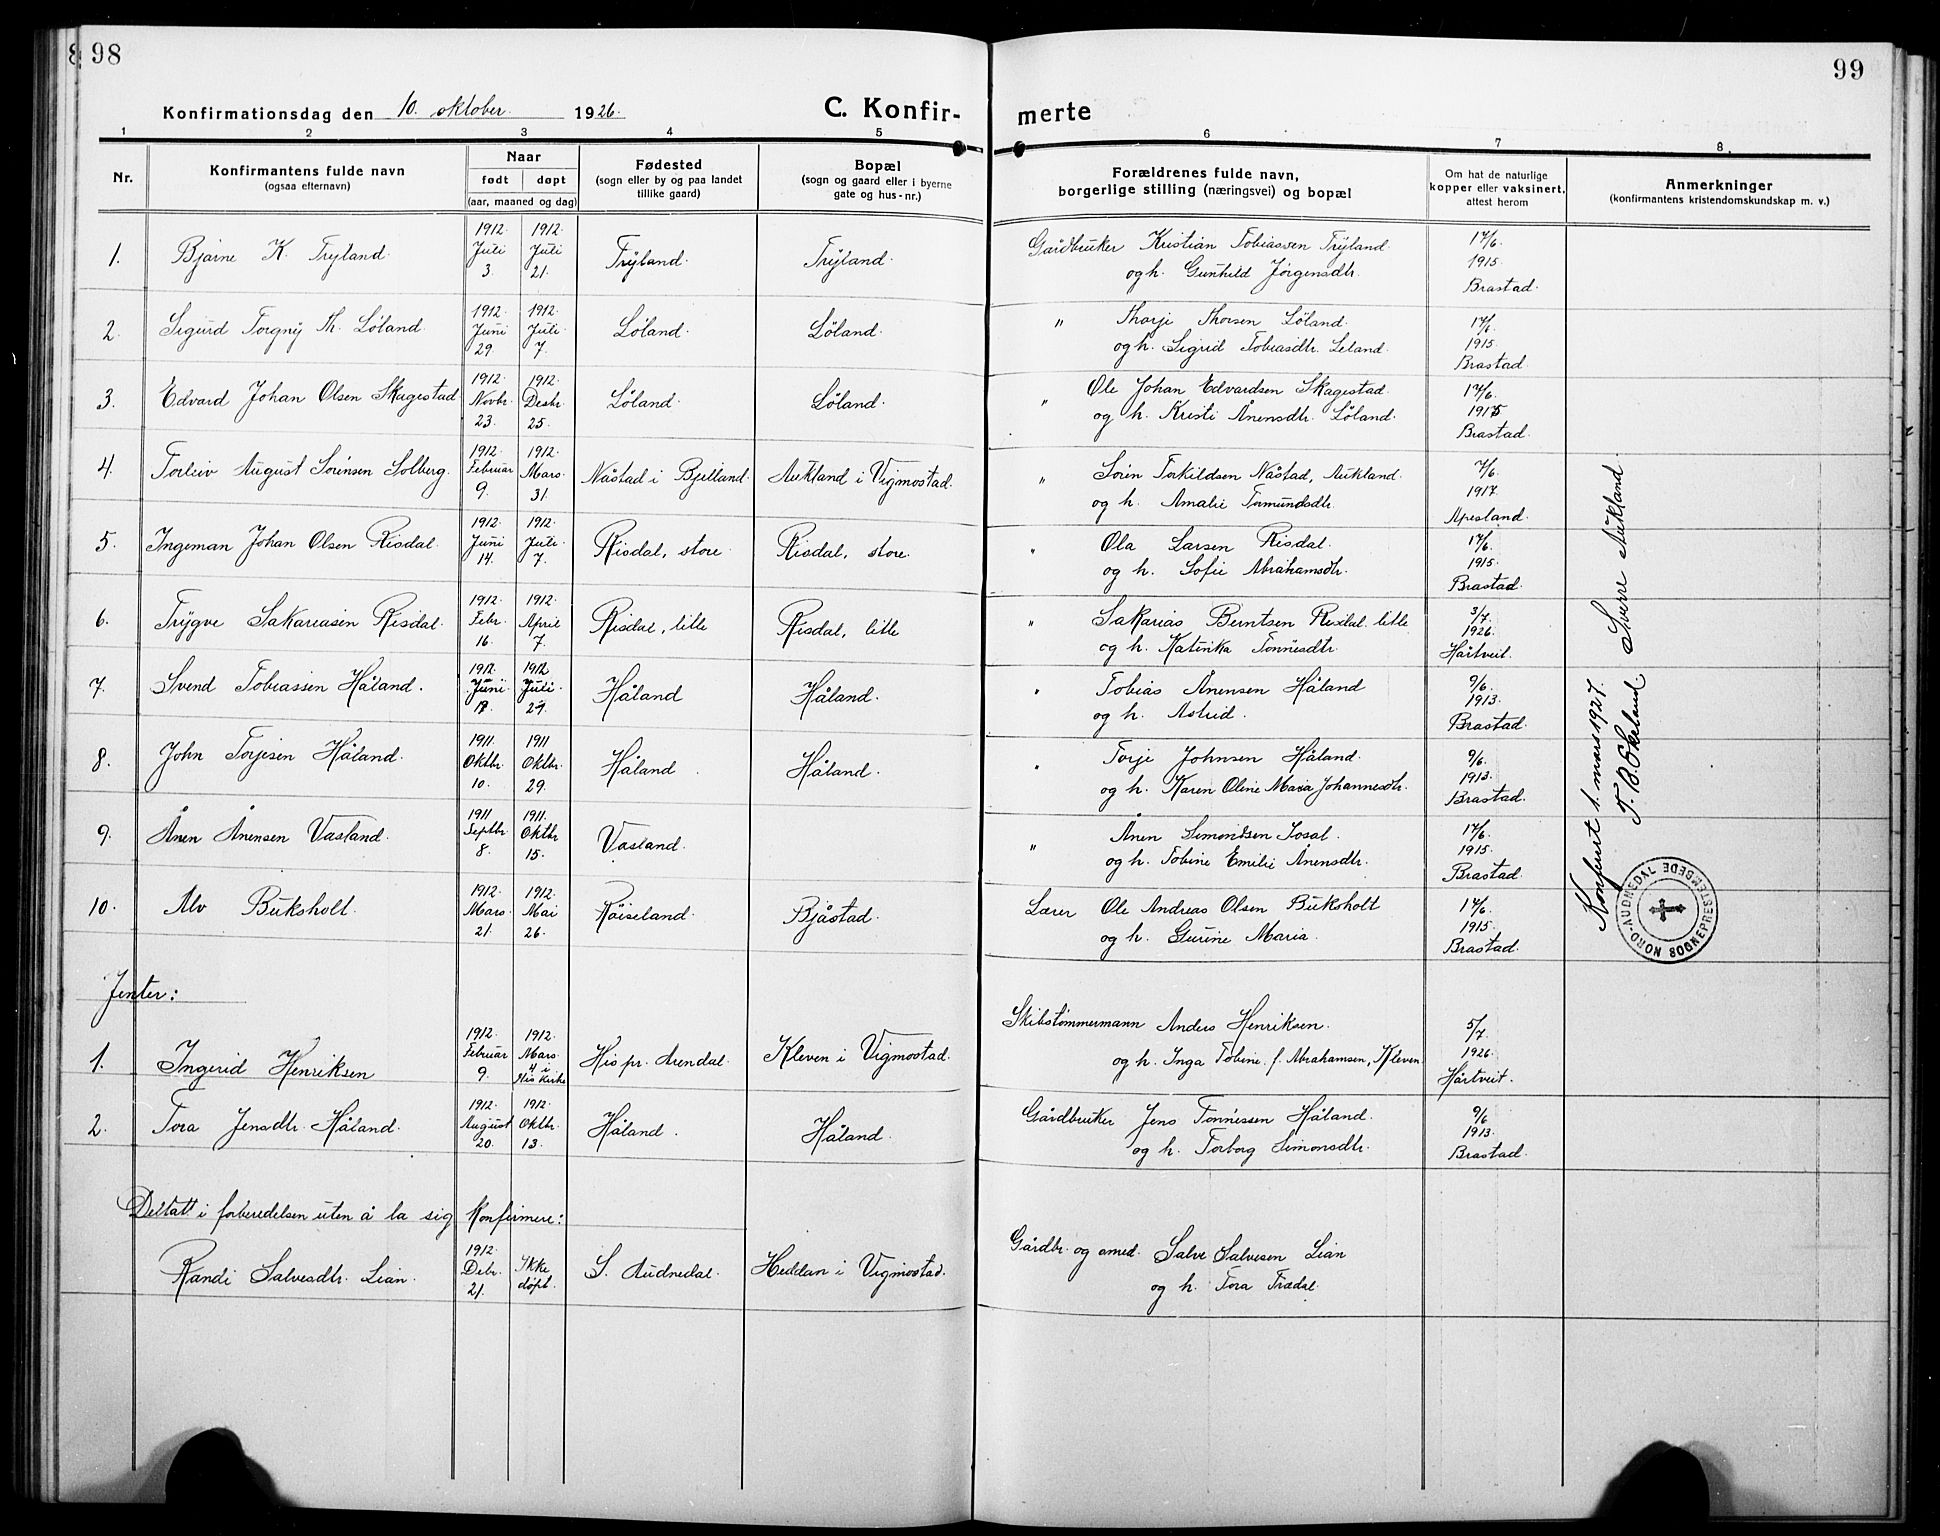 98
99
Konfirmationsdag den 10. oktober 1926.
C. Konfir-
merte
1 2 3 4 5 6 7 8
Nr.
Konfirmantens fulde navn
(ogsaa efternavn)
Naar
født døpt
(aar, maaned og dag)
Fødested
(sogn eller by og paa landet
tillike gaard)
Bopæl
(sogn og gaard eller i byerne
gate og hus-nr.)
Forældrenes fulde navn,
borgerlige stilling (næringsvei) og bopæl
Om hat de naturlige
kopper eller vaksinert,
attest herom
Anmerkninger
(konfirmantens kristendomskundskap m. v.)
1. Bjarne K. Tryland. 1912. Juli 3. 1912. Juli 21. Tryland. Tryland. Gårdbruker Kristian Tobiassen Tryland
og h. Gunhild Jørgensdtr. 17/6. 1915. Brastad.
2. Sigurd Torgny Th. Løland. 1912. Juni 29. 1912. Juli 7. Løland. Løland. " Thorje Thorsen Løland.
og h. Sigrid Tobiasdtr. Leland. 17/6. 1915. Brastad.
3. Edvard Johan Olsen Skagestad 1912. Novbr. 23. 1912. Desbr. 25. Løland. Løland. " Ole Johan Edvardsen Skagestad.
og h. Kristi Ånensdtr. Løland. 17/6. 1915 Brastad.
4. Torleiv August Sørensen Solberg. 1912. Februar 9. 1912. Mars. 31. Nåstad i Bjelland. Aukland i Vigmostad. " Sørin Torkildsen Nåstad, Aukland.
og h. Amalie Tormundsdtr. 7/6. 1917. Apesland.
5. Ingeman Johan Olsen Risdal. 1912. Juni 14. 1912. Juli. 7. Risdal, store. Risdal, store. " Ola Larsen Risdal.
og h. Sofie Abrahamsdtr. 17/6. 1915. Brastad.
6. Trygve Sakariasen Risdal. 1912. Febr. 16. 1912. April 7. Risdal, litle Risdal, litle " Sakarias Berntsen Risdal litle
og h. Katinka Tønnesdtr. 3/7. 1926. Hårtveit.
7. Svend Tobiassen Håland. 1912. Juni. 1912 Juli. Håland Håland. " Tobias Ånensen Håland
og h. Astrid. 9/6. 1913. Brastad.
8. John Torjesen Håland. 1911. Oktbr. 10. 1911 Oktbr. 29. Håland. Håland. " Torje Johnsen Håland.
og h. Karen Oline Maria Johannesdtr. 9/6. 1913. Brastad.
9. Ånen Ånensen Vasland. 1911 Septbr. 8. 1911. Oktbr 15. Vasland. " Ånen Simondsen Josal.
og h. Tobine Emilie Ånensdtr. 17/6. 1915. Brastad.
10. Alv Buksholt. 1912. Mars. 21. 1912. Mai 26. Røiseland. Bjåstad. Lærer Ole Andreas Olsen Buksholt
og h. Gurine Maria. 17/6. 1915. Brastad.
Jenter:
1. Ingerid Henriksen 1912. Februar 9. 1912. Mars. 4 i His kirke His pr. Arendal. Kleven i Vigmostad. Skibstømmermann Anders Henriksen.
og h. Inga Tobine f. Abrahamsen, Kleven 5/7. 1926. Hårtveit.
2. Tora Jensdtr. Håland. 1912. August 20. 1912. Oktbr. 13. Håland. Håland. Gårdbruker Jens Tønnessen Håland.
og h. Torborg Simonsdtr. 9/6. 1913. Brastad.
Deltatt i forberedelsen uten å la sig konfirmere:
Randi Salvesdtr. Lian. 1912. Debr. 21. Ikke døpt. S. Audnedal. Heddan i Vigmostad. Gårdbr. og smed. Salve Salvesen Lian
og h. Tora Trædal
Konferert 1. mars 1927.
T. B. Ekeland. Sverre Aukland.
NORD-AUDNEDAL SOGNEPRESTEMBEDE